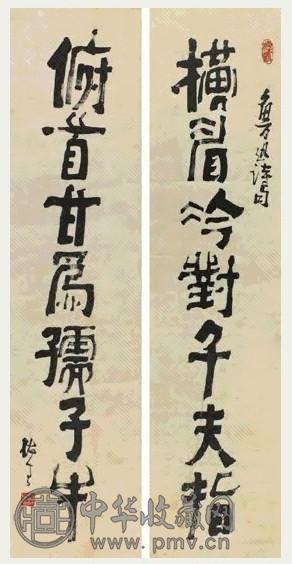 橫眉冷對千夫指
俯首甘爲孺子牛
中华收藏网
www.pmv.cn